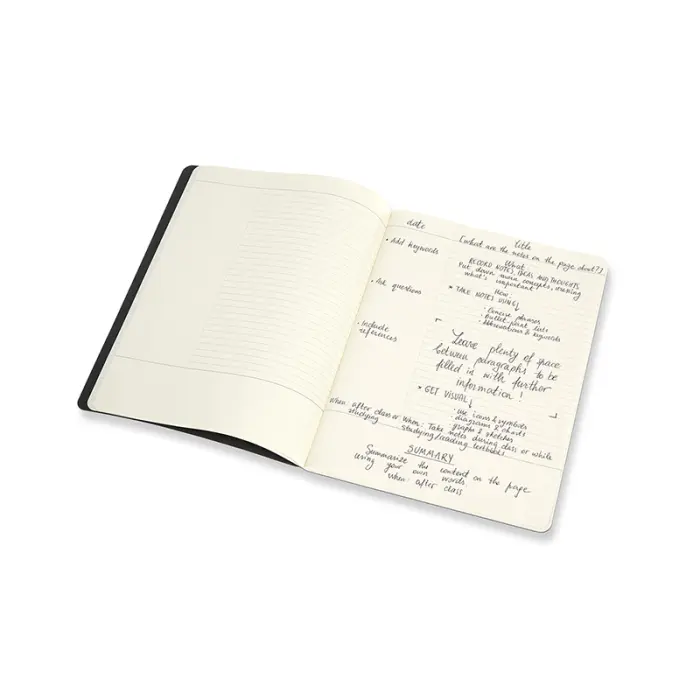 date
title
[what are the notes on the page about?]
• Add keywords
• Ask questions
• Include
references
What
RECORD NOTES, IDEAS AND THOUGHTS
Put down main concepts,
what's important
How:
• TAKE NOTES USING
· Concise phrases
· Bullet-point lists
· Abbreviations & keywords
Leave plenty of space
between paragraphs to be
filled in with further
information!
• GET VISUAL
· use icons & symbols
diagrams & charts
graphs & sketches
When: after class or
studying
When: Take notes during class or while
studying/reading textbooks
SUMMARY
Summarize the content on the page
using your own words.
when: after class